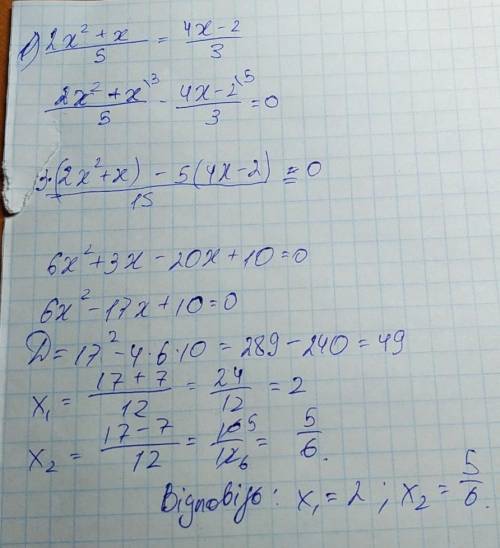 1) (2x² + x)/5 = (4x - 2)/3
(2x² + x)/5 \3 - (4x - 2)/3 \5 = 0
(3·(2x² + x) - 5(4x - 2))/15 = 0
6x² + 3x - 20x + 10 = 0
6x² - 17x + 10 = 0
D = 17² - 4·6·10 = 289 - 240 = 49
x₁ = (17 + 7)/12 = 24/12 = 2
x₂ = (17 - 7)/12 = 10 5/12 6 = 5/6.
Відповідь: x₁ = 2 ; x₂ = 5/6.